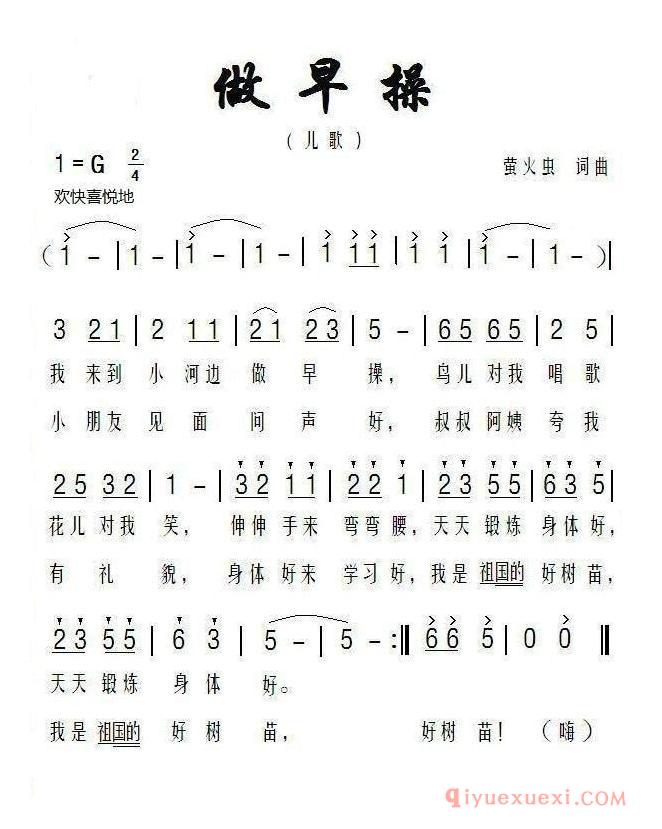 做早操
(儿歌)
1=G 2/4
萤火虫 词曲
欢快喜悦地
(1 - | 1 - | 1 - | 1 - | 1 11 | 1 1 | 1 - | 1 - )|
3 21 | 2 11 | 21 23 | 5 - | 65 65 | 2 5 |
我 来到 小 河边 做 早 操, 鸟儿 对我 唱歌
小 朋友 见 面 问 声 好, 叔叔 阿姨 夸 我
25 32 | 1 - | 32 11 | 22 1 | 23 55 | 63 5 |
花儿 对我 笑, 伸伸 手来 弯弯 腰, 天天 锻炼 身体 好,
有 礼 貌, 身体 好来 学习 好, 我是 祖国的 好树 苗,
23 55 | 6 3 | 5 - | 5 - :‖ 66 5 | 0 0 ‖
天天 锻炼 身 体 好。
我是 祖国的 好 树 苗, 好树 苗! (嗨)
Qiyuexuexi.com